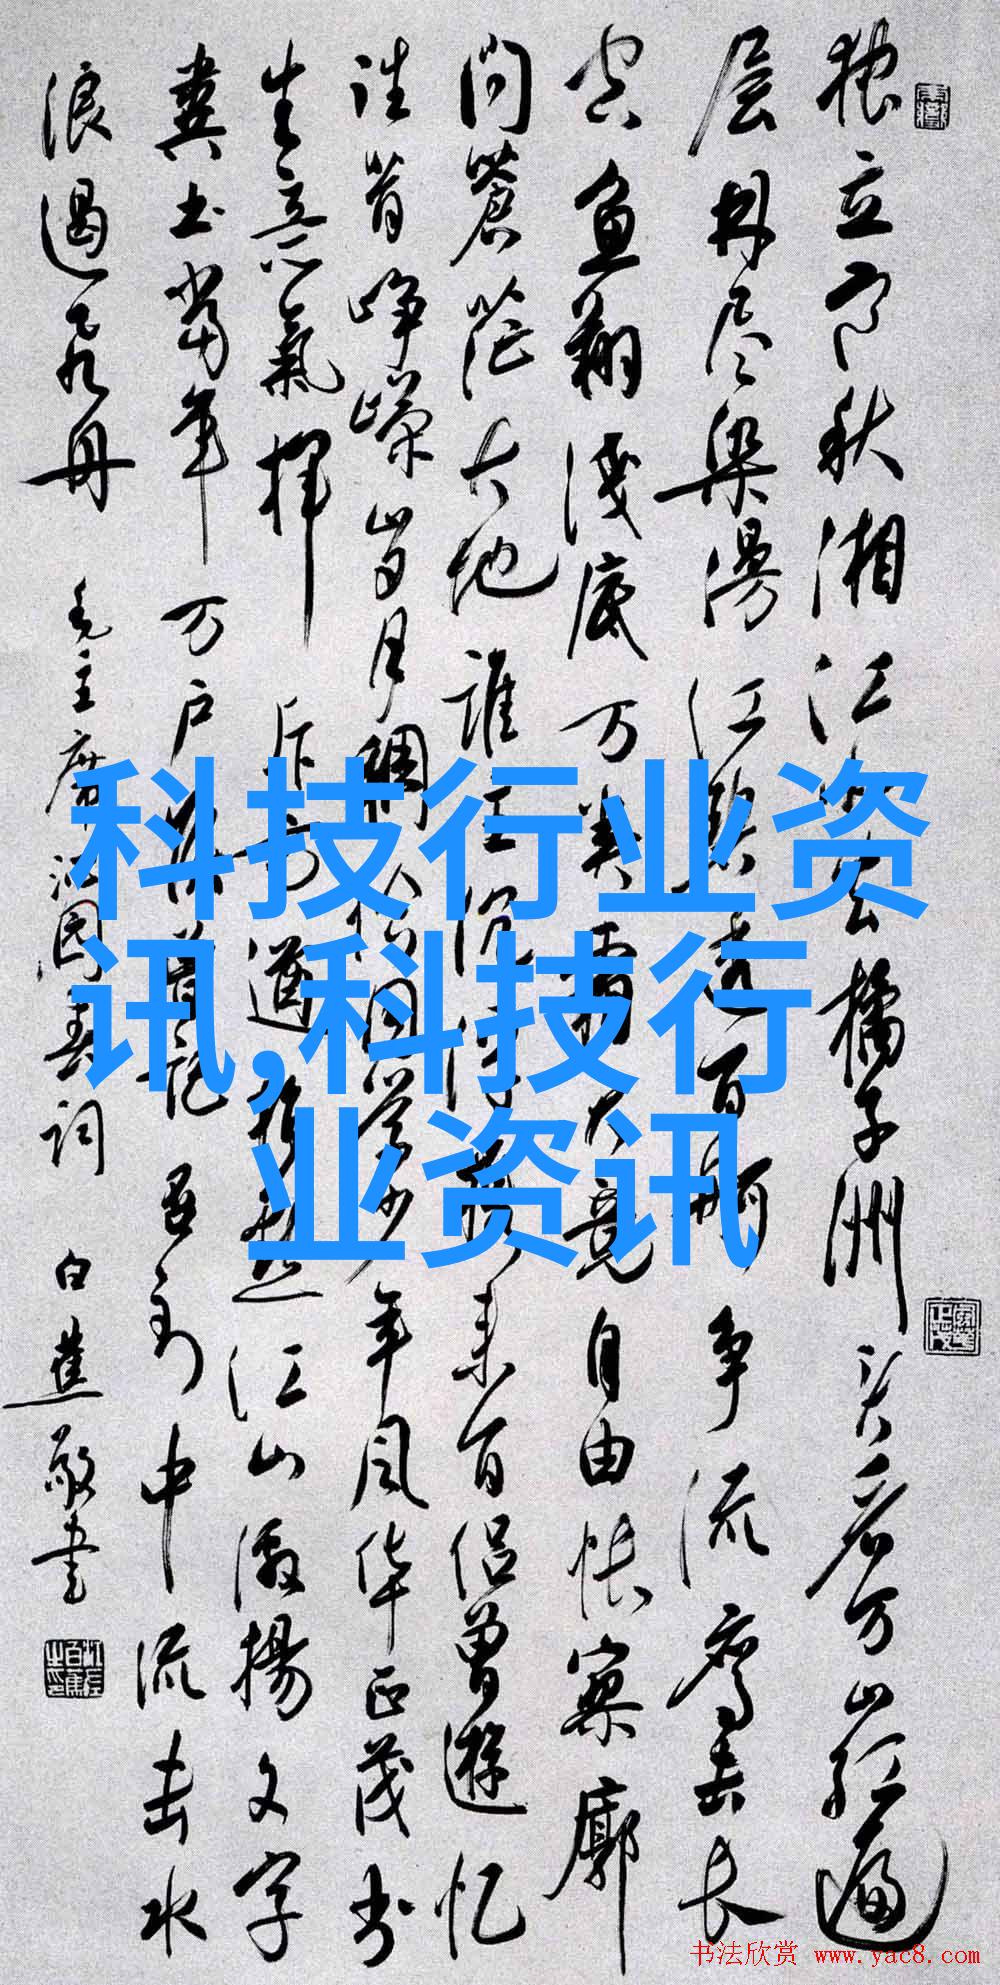 独立寒秋湘江北去橘子洲头看万山红遍
层林尽染漫江碧透百舸争流鹰击长
空鱼翔浅底万类霜天竞自由怅寥廓
问蒼茫大地谁主沉浮携来百侣曾遊忆
往昔峥嵘岁月稠恰同学少年风华正茂书
生意氣挥斥方遒指点江山激揚文字
粪土当年万户侯曾记否到中流击水
浪遏飞舟 毛主席沁园春词 白蕉敬书
科技行业资
讯,科技行
业资讯
书法欣赏 www.yac8.com